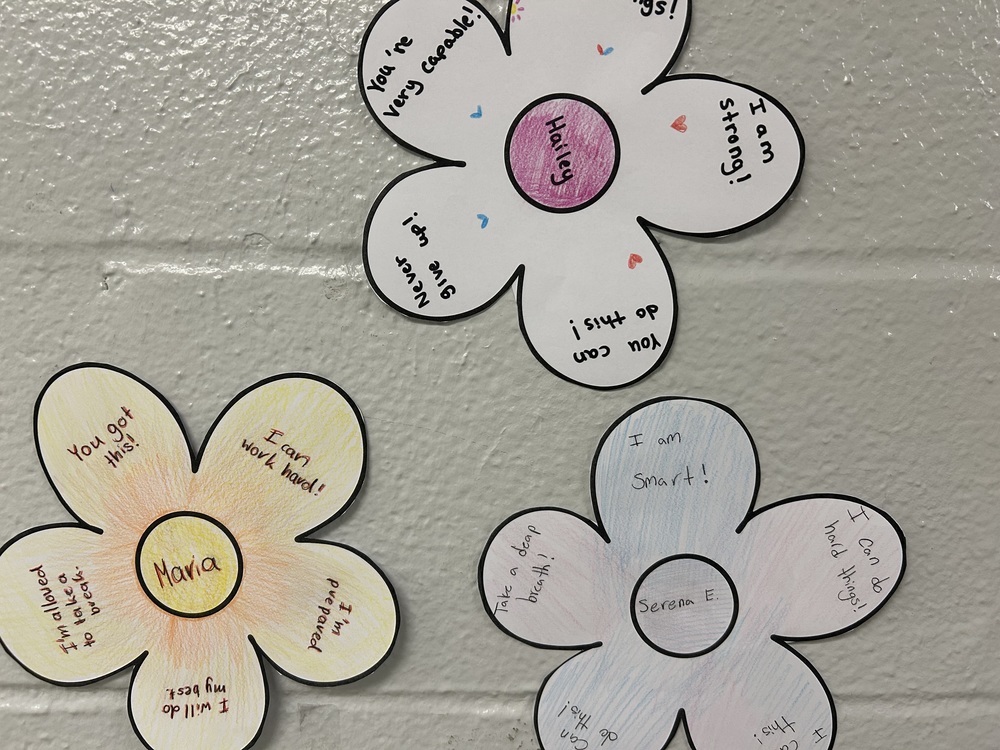 You're
very capable!
gs!
I am
strong!
You can
do this!
Never
give up!
Hailey
You got
this!
I can
work hard!
I'm
prepared
I will do
my best.
I'm allowed
to take a
break.
Maria
I am
Smart!
I can do
hard things!
I
this!
can
do this!
Take a deap
breath!
Serena E.